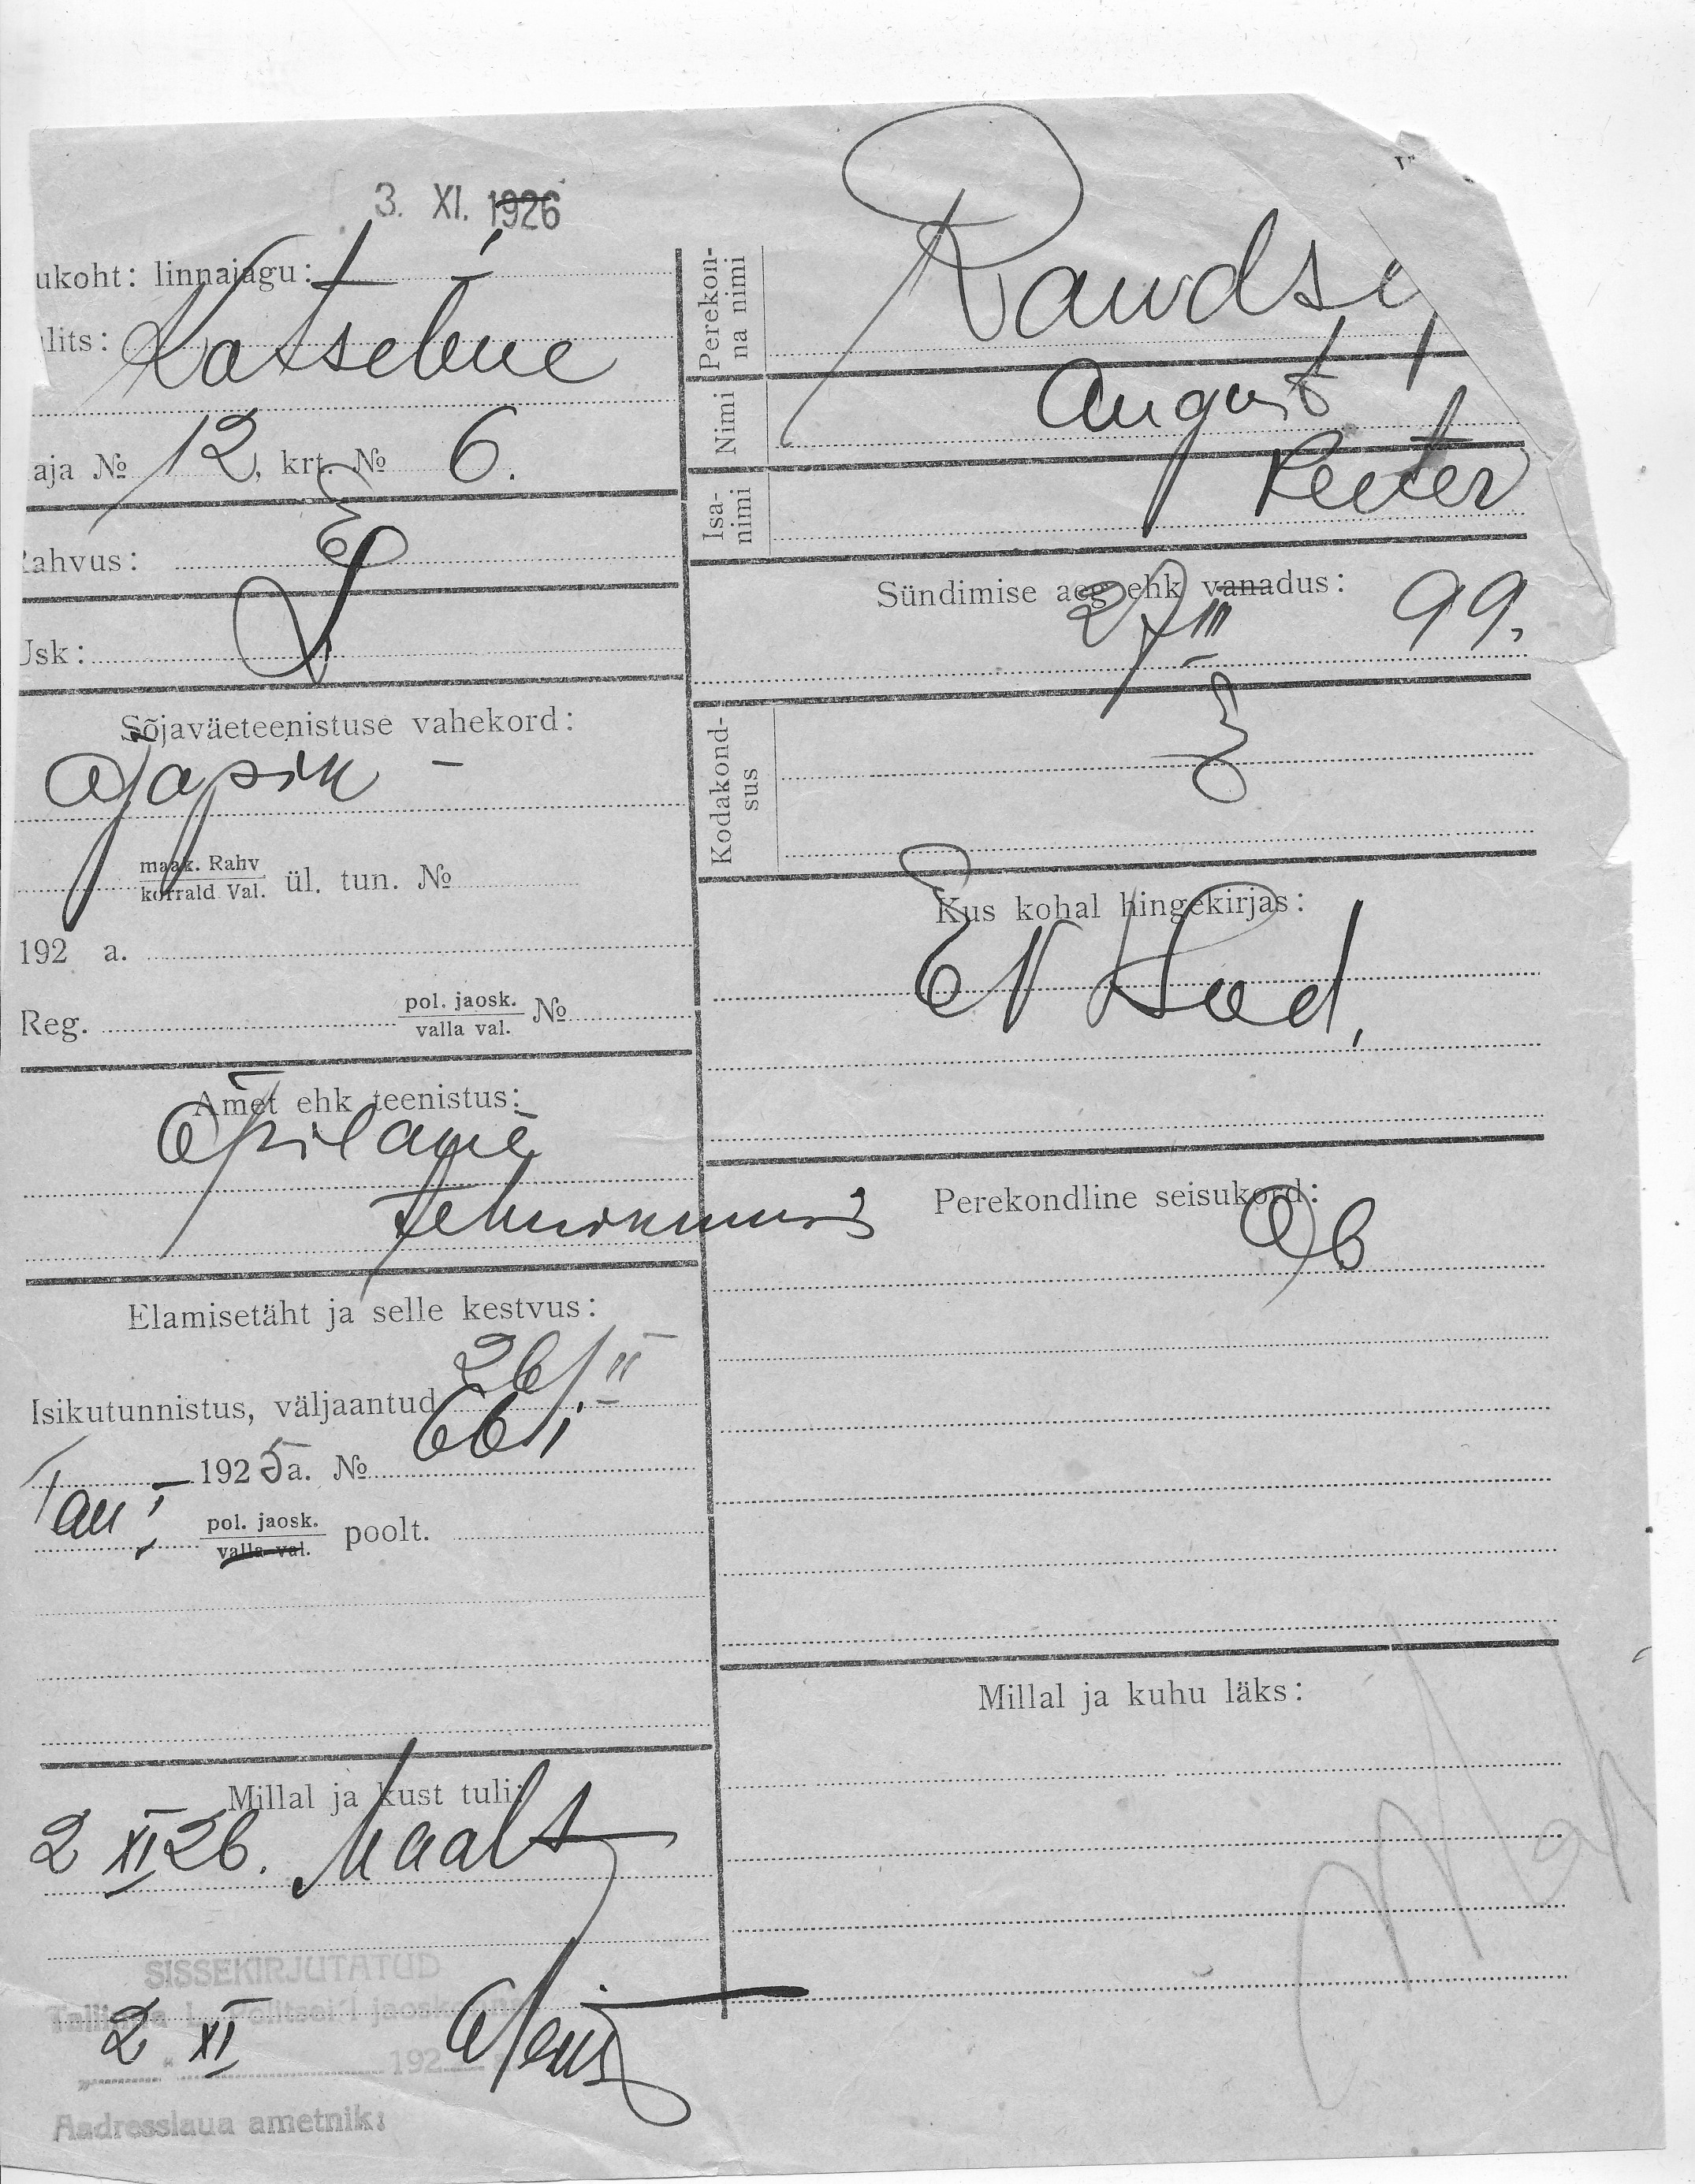 3. XI. 1926
ukoht: linnajagu: I
lits: Kotsebue
aja № 12, krt. № 6.
ahvus: E
Usk:
Sõjaväeteenistuse vahekord:
ajapik -
maak. Rahv
korrald Val. ül. tun. №
192 a.
Reg. pol. jaosk.
valla val. №
Amet ehk teenistus:
Õpilane
Tehnikumis
Elamisetäht ja selle kestvus:
26/II
Isikutunnistus, väljaantud
1925 a. № 661
Tall I pol. jaosk.
valla val. poolt.
Millal ja kust tuli:
2 XI 26. Maalt
SISSEKIRJUTATUD
Tallinna L. Politsei I jaosk
2 XI 192
Aadresslaua ametnik:
Perekon-
na nimi
Raudsi
Nimi
August
Isa-
nimi
Peeter
Sündimise aeg ehk vanadus:
27 III 99.
Kodakond-
sus
E
Kus kohal hingekirjas:
EV Kod.
Perekondline seisukord:
Millal ja kuhu läks: